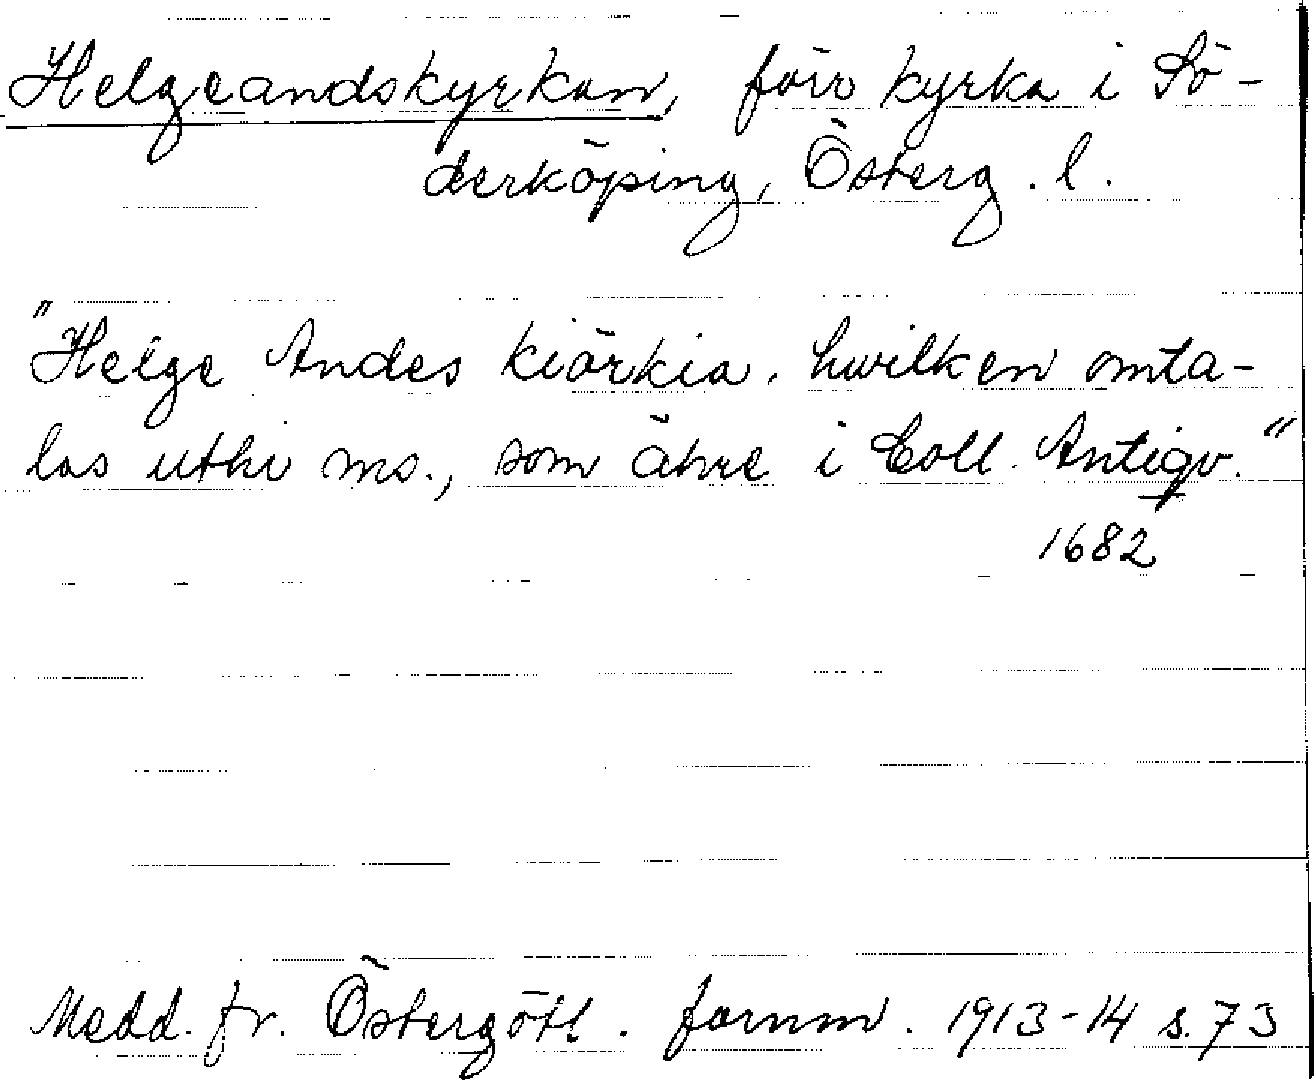 Helgeandskyrkan, förr kyrka i Sö-
derköping, Österg. l.
"Helge Andes kiörkia, hwilken omta-
las uthi ms., som ähre i Coll. Antiqv."
1682
Medd. fr. Östergötl. fornm. 1913-14 s. 73